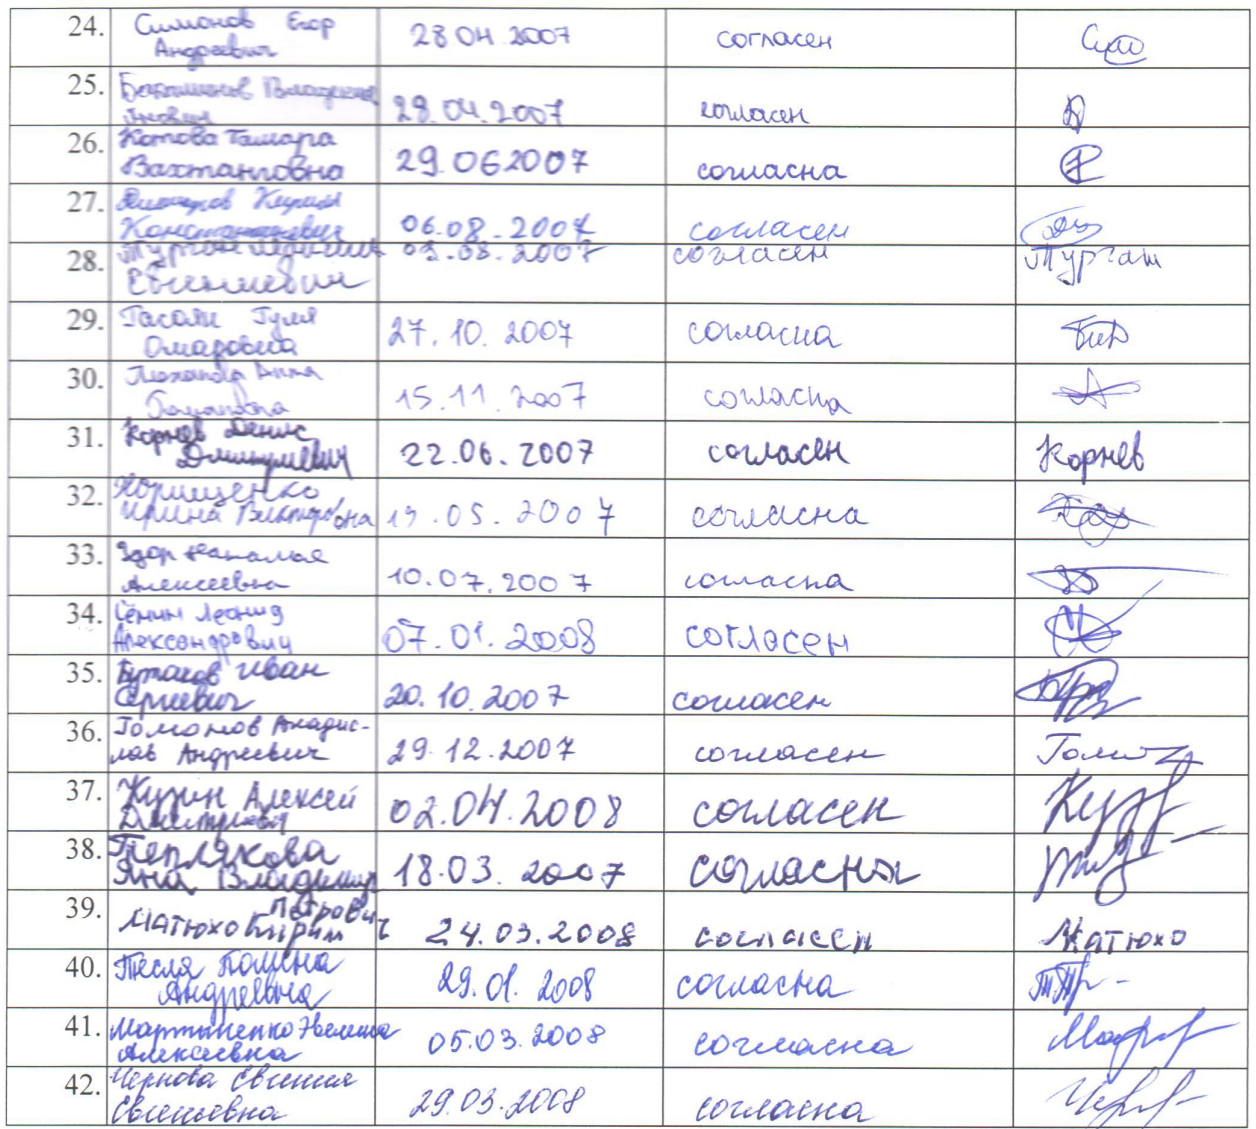 24. Симонов Егор 28.04.2007 согласен
Андреевич
25.
28.04.2007 согласен
26. Котова Тамара
Вахтанговна 29.06 2007 согласна
27. Кирилл
Константинович 06.08.2007 согласен
28. Турган 03.08.2007 согласен Турган
Евгениевич
29. Гасоян Гуля 27.10.2007 согласна
Омаровна
30. Анна
15.11.2007 согласна
31. Корнев Денис
Дмитриевич 22.06.2007 согласен Корнев
32.
Ирина Викторовна 19.05.2007 согласна
33. Здор Наталья
Алексеевна 10.07.2007 согласна
34. Сёмин Леонид
Александрович 07.01.2008 согласен
35. Бутаков Иван
Сергеевич 20.10.2007 согласен
36. Гомонов Владис-
лав Андреевич 29.12.2007 согласен
37. Кузин Алексей
Дмитриевич 02.04.2008 согласен
38. Теплякова
Яна Владимир 18.03.2007 согласна
39. Петрович
Матюхо Кирилл 24.03.2008 согласен Матюхо
40. Тесля Полина
Андреевна 29.01.2008 согласна
41. Мартыненко Эвелина
Алексеевна 05.03.2008 согласна
42. Чернова Евгения
Евгеньевна 29.03.2008 согласна